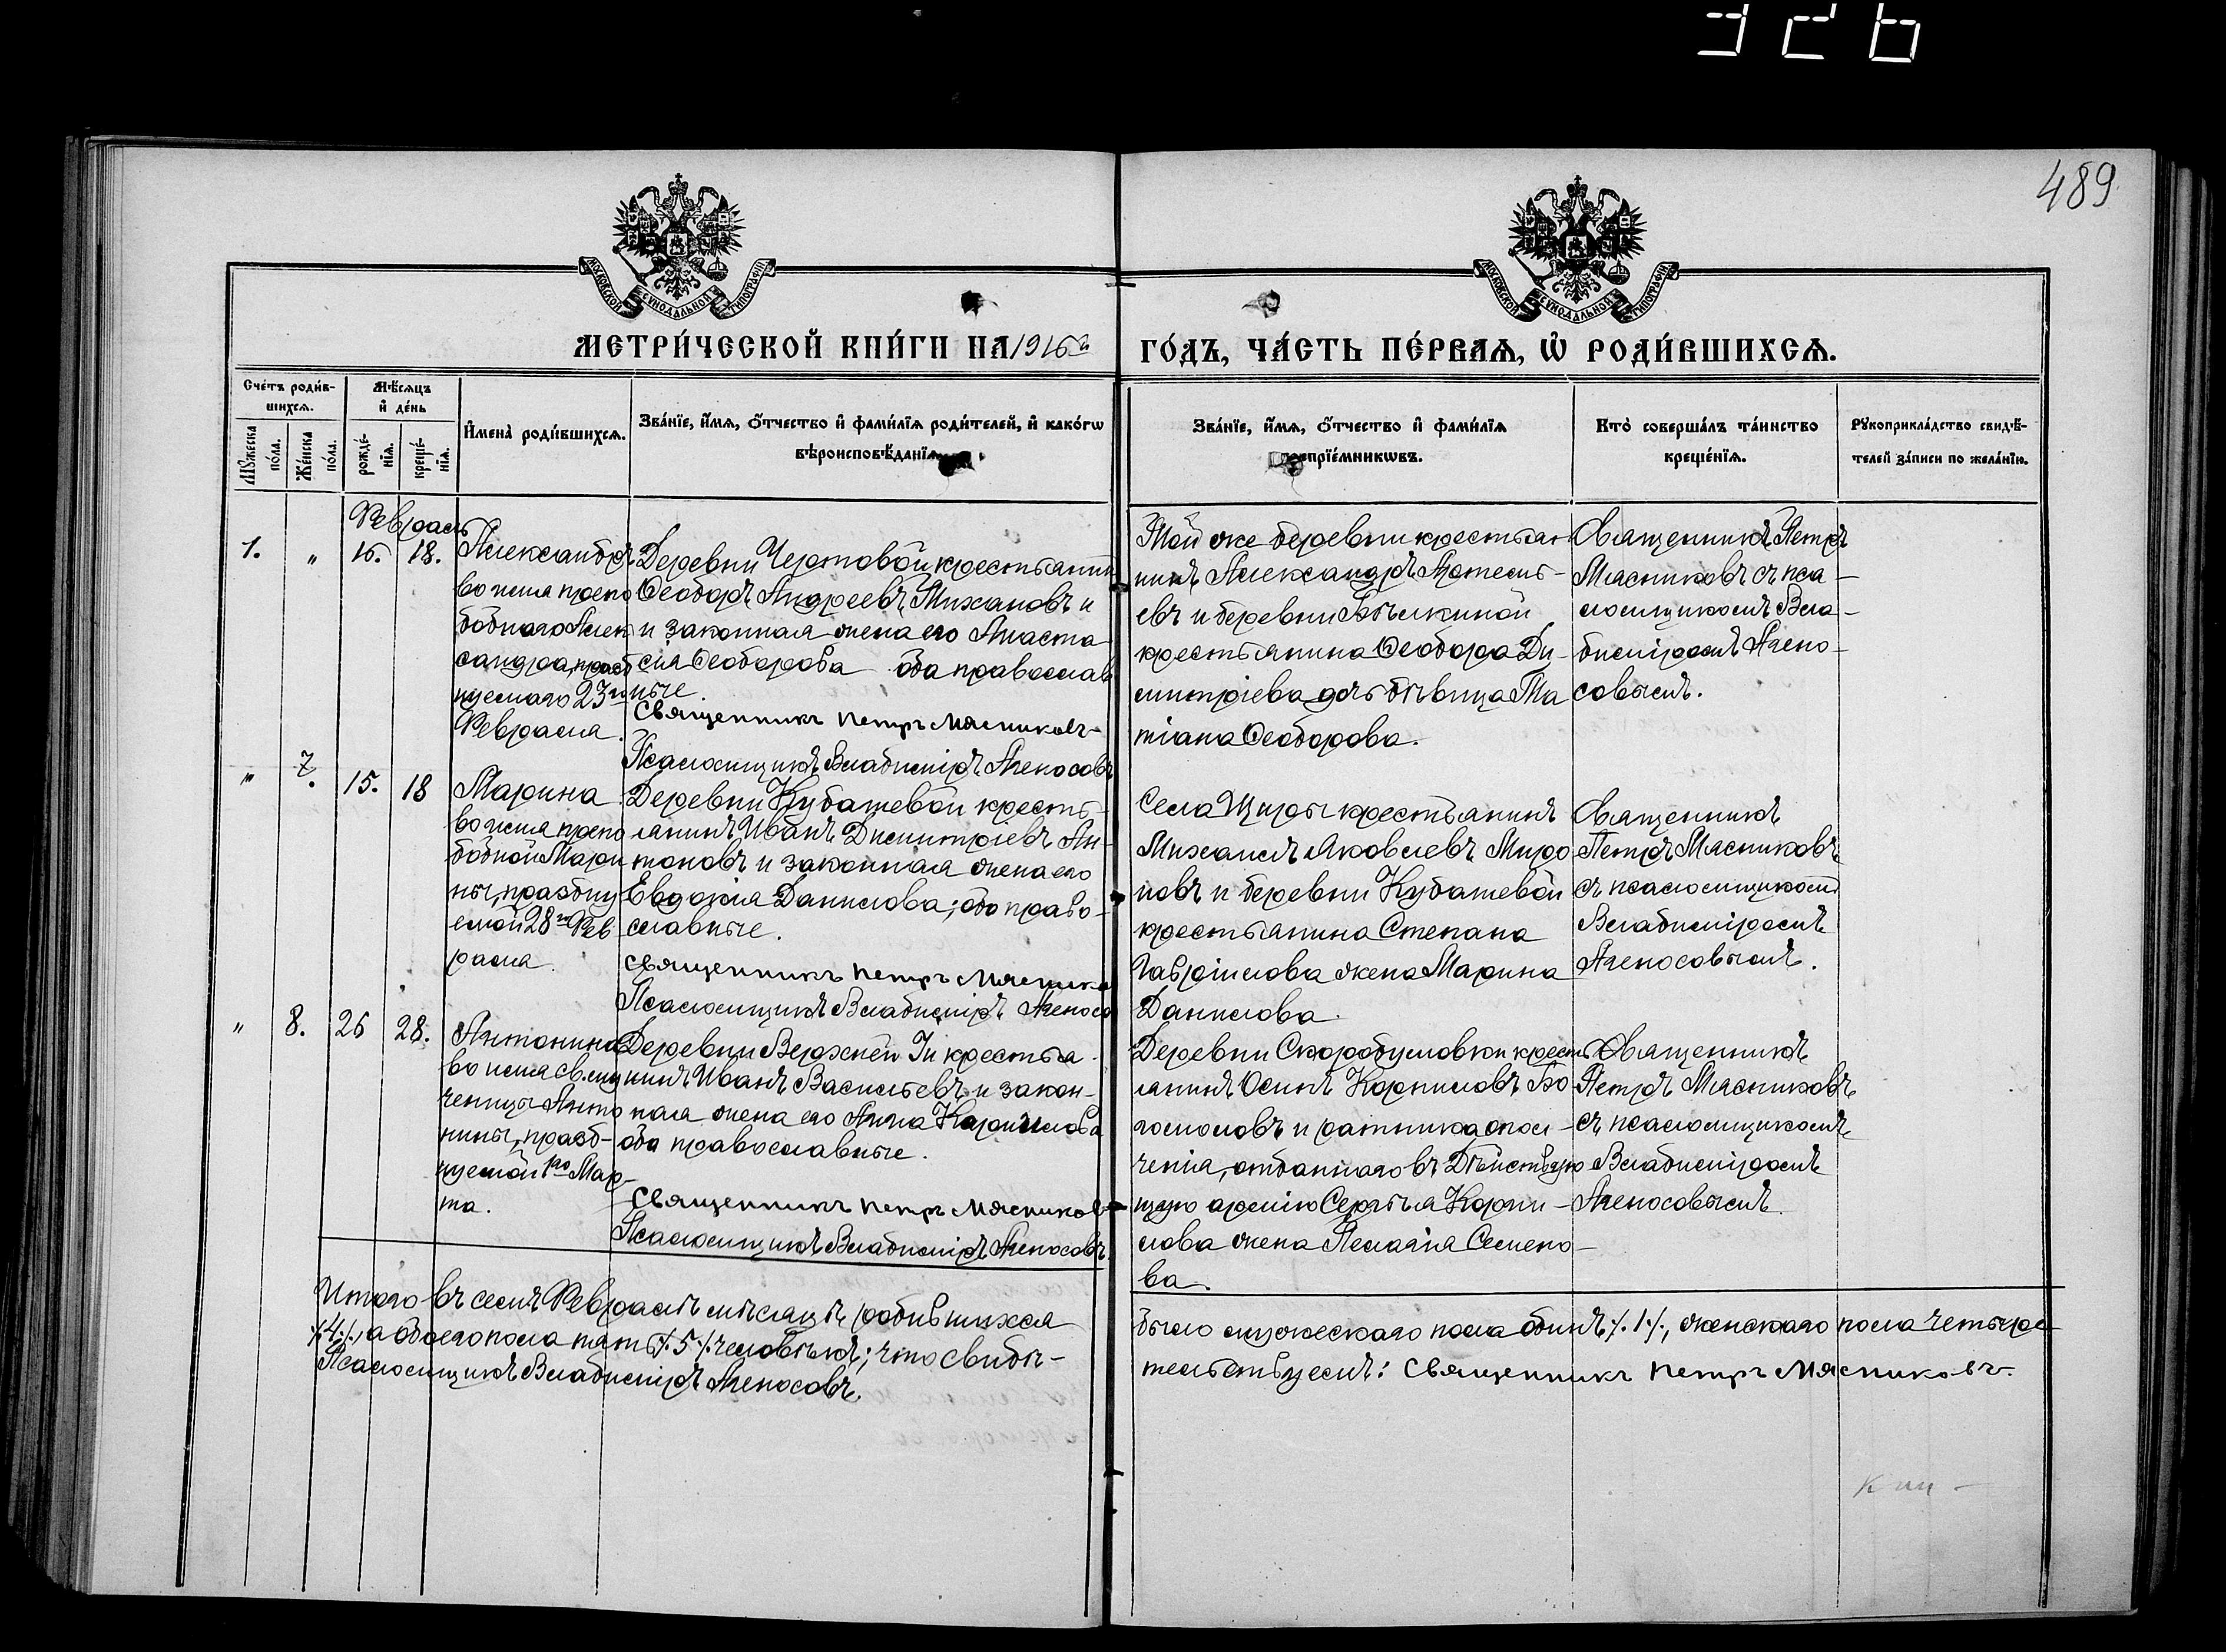 326
489
МОСКОВСКОЙ СѴНОДАЛЬНОЙ ТИПОГРАФІИ
МОСКОВСКОЙ СѴНОДАЛЬНОЙ ТИПОГРАФІИ
МЕТРИ́ЧЕСКОЙ КНИ́ГИ НА 1916й ГО́ДЪ, ЧА́СТЬ ПЕ́РВАѦ, Ѡ РОДИ́ВШИХСѦ.
Сче́тъ роди́в-
шихсѧ.
Мѣ́сѧцъ
и҆ де́нь
Мꙋ́жеска
по́ла.
Же́нска
по́ла.
рожде́-
нїѧ.
креще́-
нїѧ.
И҆мена̀ роди́вшихсѧ.
Зва́нїе, и҆́мѧ, о҆́тчество и҆ фами́лїѧ роди́телей, и҆ како́гѡ
вѣроисповѣ́данїѧ.
Зва́нїе, и҆́мѧ, о҆́тчество и҆ фами́лїѧ
воспрїе́мникѡвъ.
Кто̀ соверша́лъ та́инство
креще́нїѧ.
Рꙋкоприкла́дство свидѣ́-
телей за́писи по жела́нїю.
Февраль
1. " 16. 18.
Александръ
во имя препо
добнаго Алек
сандра, празд
нуемаго 23го
Февраля.
Деревни Чертовой крестьянин
Ѳеодоръ Андреевъ и
и законная жена его Анаста-
сія Ѳеодорова оба православ
ные.
Священникъ Петръ Мясниковъ
Псаломщикъ Владиміръ Аченосовъ
Той же деревни крестья-
нинъ Александръ
евъ и деревни Бѣлкиной
крестьянина Ѳеодора Ди-
митріева дочь дѣвица Та
тіана Ѳеодорова.
Священникъ Петръ
Мясниковъ съ пса-
ломщикомъ Вла-
диміромъ Ачено-
совымъ.
" 7. 15. 18
Марина
во имя препо
добной Мари
ны, праздну
емой 28го Фев
раля.
Деревни Кубашевой кресть-
янинъ Иванъ Димитріевъ Ан-
тоновъ и законная жена его
Евдокія Данилова; оба право-
славные.
Священникъ Петръ Мяснико
Псаломщикъ Владиміръ Аченосо
Села Щиры крестьянинъ
Михаилъ Яковлевъ Миро
новъ и деревни Кубашевой
крестьянина Степана
Гавріилова жена Марина
Данилова.
Священникъ
Петръ Мясниковъ
съ псаломщикомъ
Владиміромъ
Аченосовымъ.
" 8. 26 28.
Антонина
во имя св. му
ченицы Анто
нины, празд-
нуемой 1го Мар-
та.
Деревни Верхней Iй крестья-
нинъ Иванъ Васильевъ и закон-
ная жена его Анна Корнилова
оба православные.
Священникъ Петръ Мясников
Псаломщикъ Владиміръ Аченосовъ
Деревни Скоробуловки кресть
янинъ Осипъ Корниловъ Бо-
гомоловъ и ратника опол-
ченія, отданнаго въ Дѣйствую
щую армію Сергѣя Корни-
лова жена Пелагія Семено-
ва.
Священникъ
Петръ Мясниковъ
съ псаломщикомъ
Владиміромъ
Аченосовымъ.
Итого въ семъ Февралѣ мѣсяцѣ родившихся было мужескаго пола одинъ ./.1./., женскаго пола четыре
./.4./., а обоего пола пять ./.5./. человѣкъ; что свидѣ-тельствуемъ: Священникъ Петръ Мясниковъ.
Псаломщикъ Владиміръ Аченосовъ.